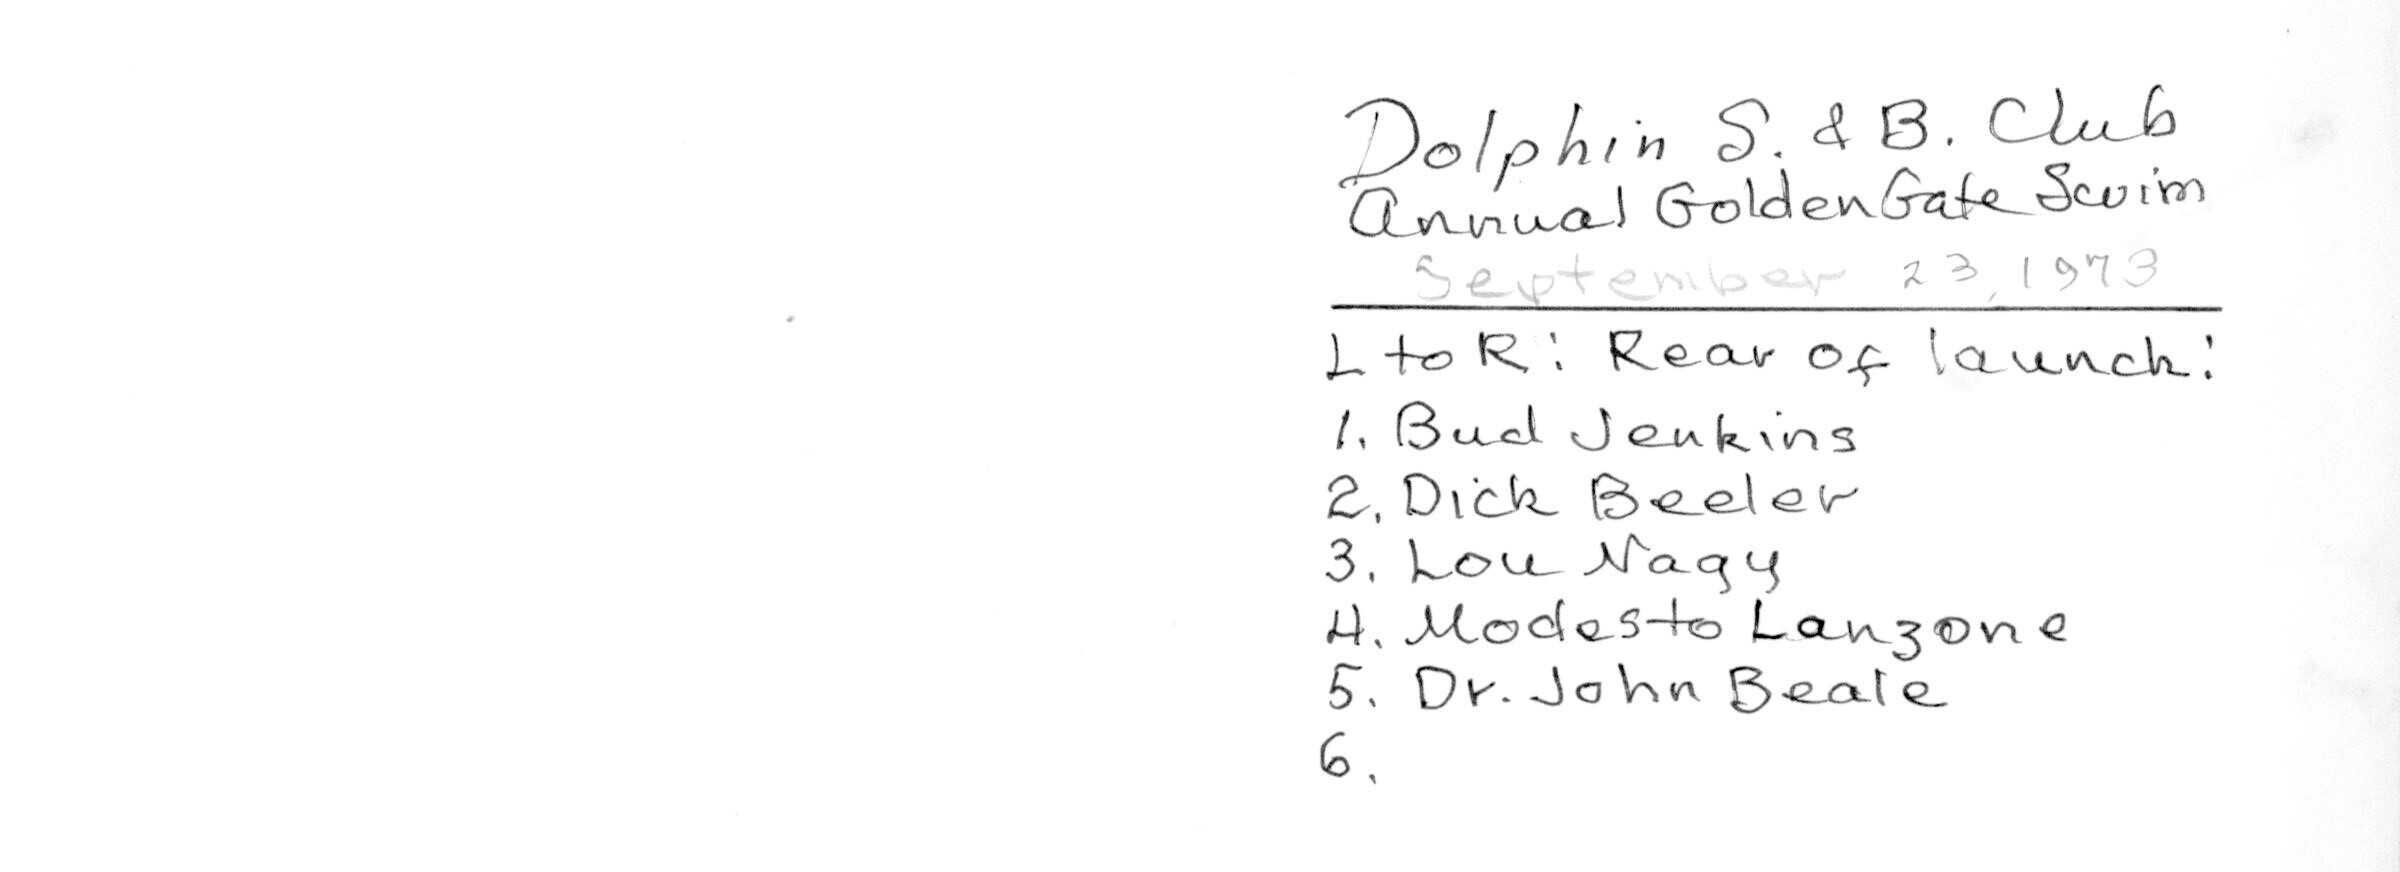 Dolphin S. & B. Club
Annual Golden Gate Swim
September 23, 1973
L to R: Rear of launch:
1. Bud Jenkins
2. Dick Beeler
3. Lou Nagy
4. Modesto Lanzone
5. Dr. John Beale
6.